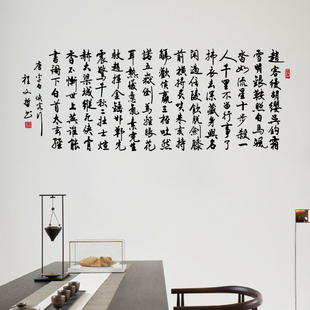 趙客縵胡纓吳鉤霜
雪明銀鞍照白馬颯
沓如流星十步殺一
人千里不留行事了
拂衣去深藏身與名
閑過信陵飲脫劍膝
前橫將炙啖朱亥持
觴勸侯嬴三杯吐然
諾五嶽倒為輕眼花
耳熱後意氣素霓生
救趙揮金鎚邯鄲先
震驚千秋二壯士烜
赫大梁城縱死俠骨
香不慚世上英誰能
書閣下白首太玄經
唐李白俠客行
程文